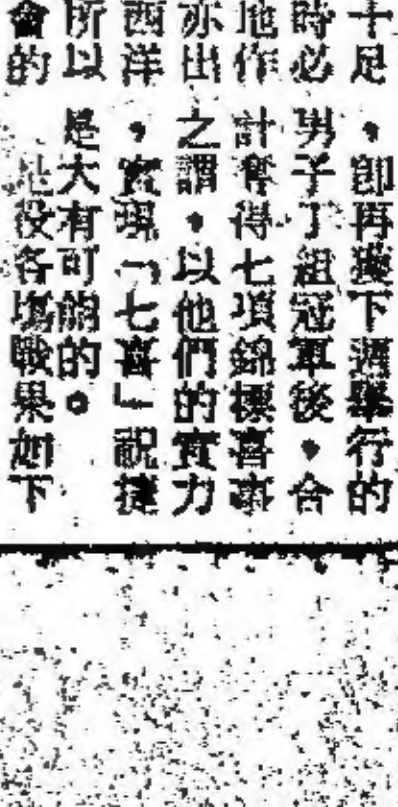 十足，即再獲下週舉行的
時必男子丁組冠軍後，合
地作計奪得七項錦標喜事
亦出之謂，以他們的實力
西洋，實現「七喜」祝捷
所以是大有可能的。
會的是役各場戰果如下